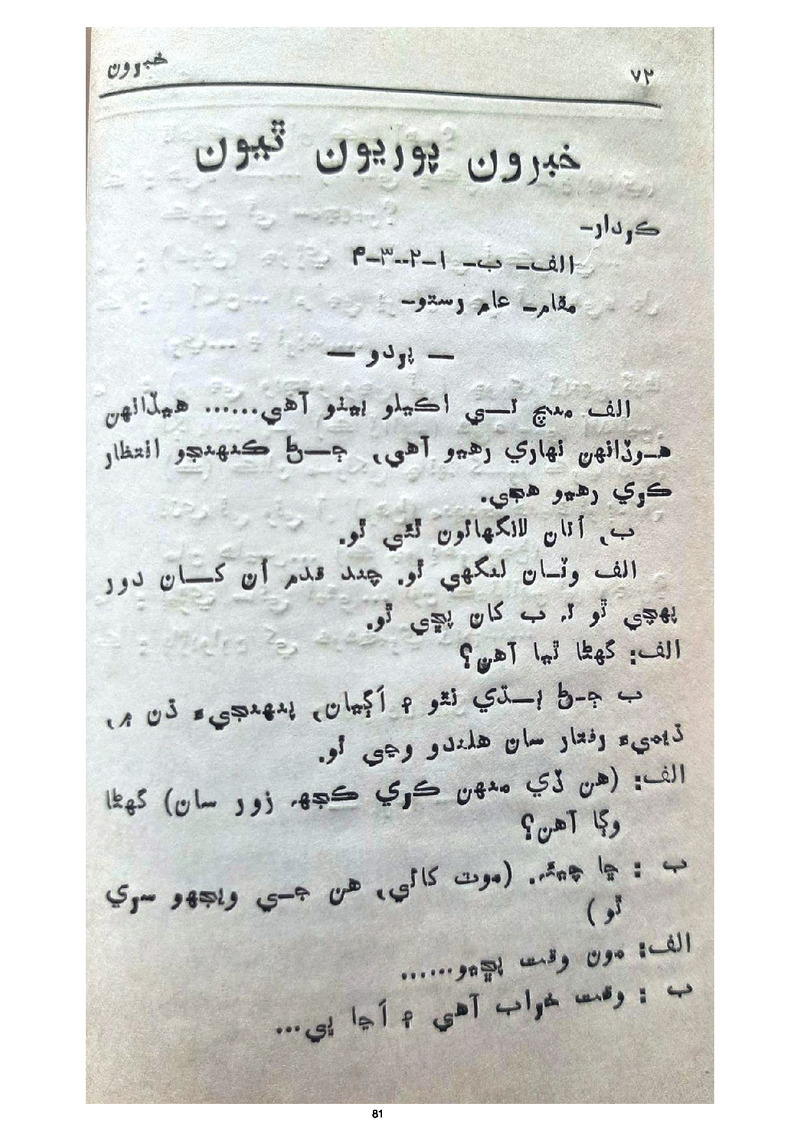 ۷۲ خبرون
خبرون پوريون ٿيون
ڪردار-
الف- ب- ۱-۲--۳-م
مقام- عام رستو-
— پردو —
الف منچ تــي اڪيلو بيٺو آهي...... هيڏانهن
هــوڏانهن نهاري رهيو آهي، ڄــڻ ڪنهنجو انتظار
ڪري رهيو هجي.
ب، اُتان لانگهائون ٿئي ٿو.
الف وٽــان لنگهي ٿو. چند قدم اُن کــان دور
پهچي ٿو ته ب کان پڇي ٿو.
الف: گهڻا ٿيا آهن؟
ب ڄــڻ ٻــڌي نٿو ۽ اَڳيان، پنهنجيءَ ڌن ۾،
ڌيميءَ رفتار سان هلندو وڃي ٿو.
الف: (هن ڏي منهن ڪري ڪجهه زور سان) گهڻا
وڳا آهن؟
ب : ڇا چيئه. (موٽ کائي، هن جــي ويجهو سري
ٿو )
الف: مون وقت پڇيو......
ب : وقت خواب آهي ۽ اَڇا پي...
81